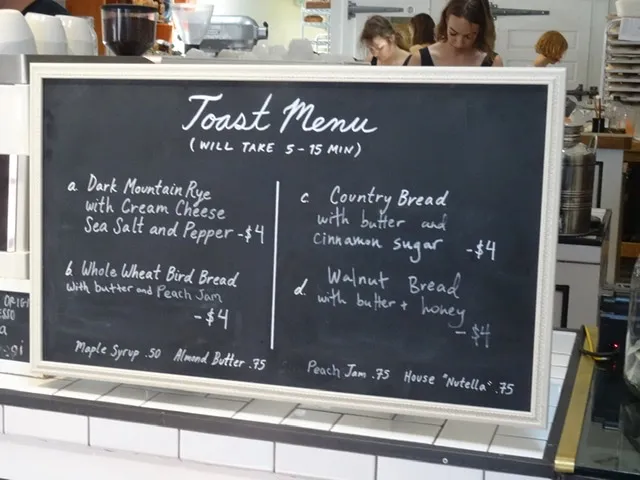 Toast Menu
(WILL TAKE 5-15 MIN)
a. Dark Mountain Rye
with Cream Cheese
Sea Salt and Pepper -$4
b. Whole Wheat Bird Bread
with butter and Peach Jam
-$4
c. Country Bread
with butter and
cinnamon sugar -$4
d. Walnut Bread
with butter + honey
-$4
Maple Syrup .50 Almond Butter .75
Peach Jam .75 House "Nutella" .75